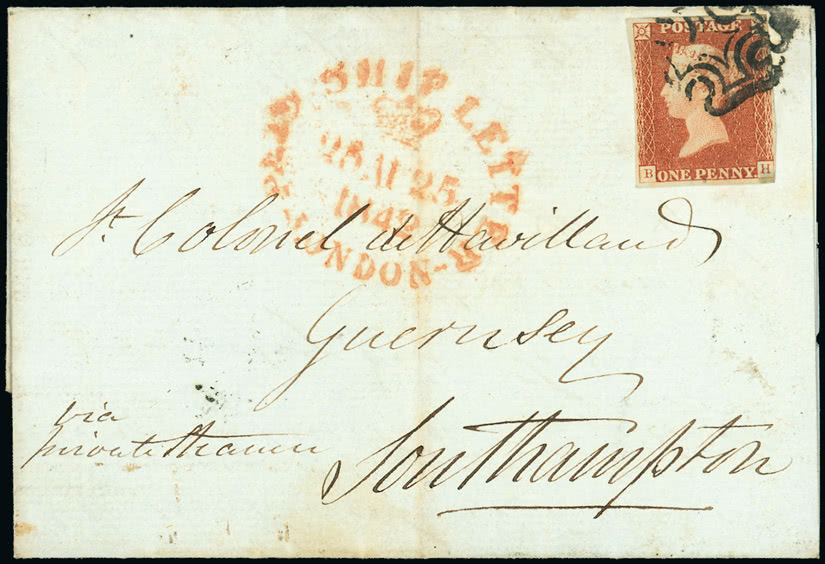 POSTAGE
ONE PENNY
B H
PAID SHIP LETTER
25 AU 25
1842
LONDON
Lt. Colonel de Havilland
Guernsey
via
private steamer
Southampton